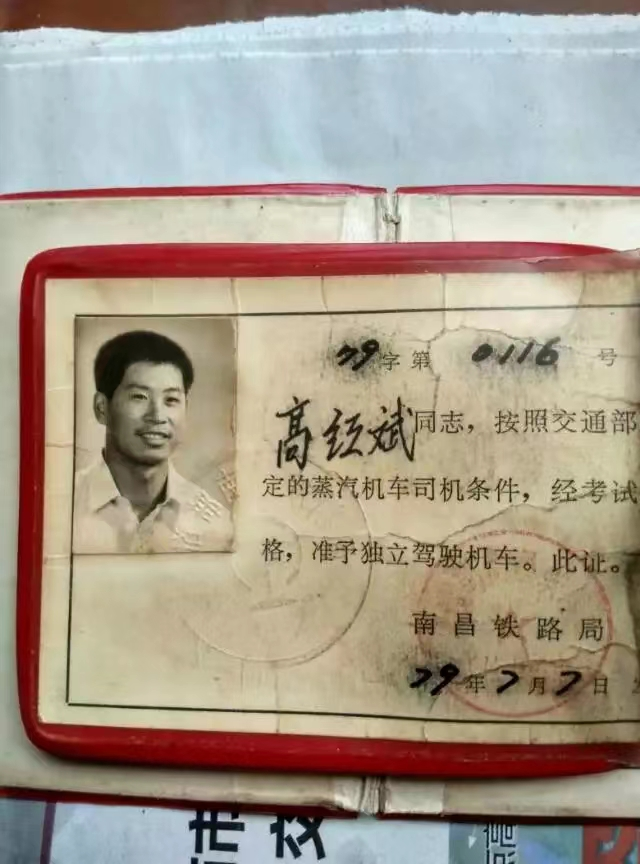 79字第 0116 号
高经斌同志，按照交通部
定的蒸汽机车司机条件，经考试
格，准予独立驾驶机车。此证。
南昌铁路局
79年7月7日